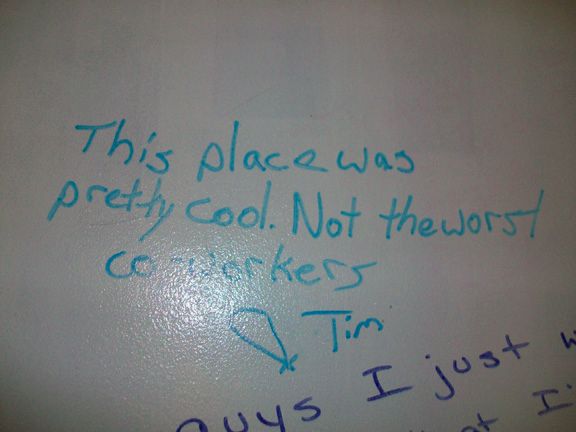 This place was
pretty cool. Not the worst
co-workers
Tim
guys I just
I'